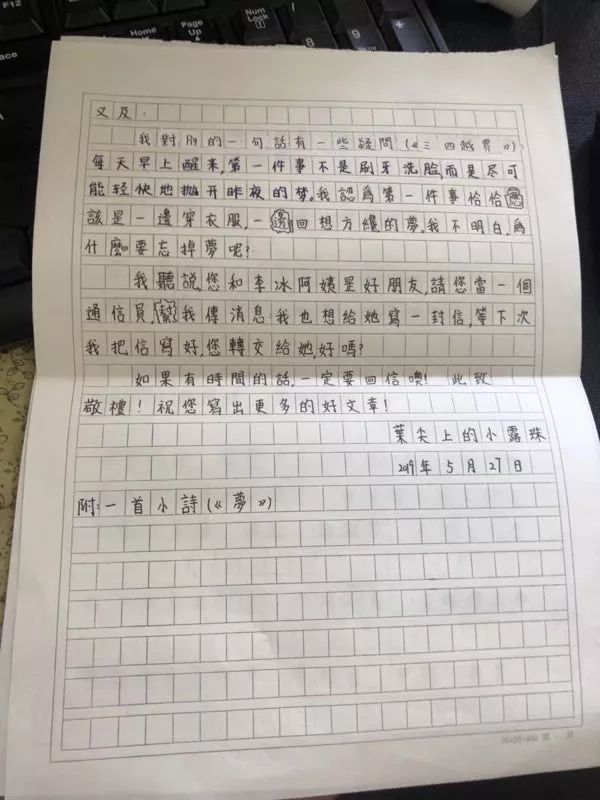 F12
Home
Page Up
Num Lock
8
9
又及:
我對P4的一句話有一些疑問(《三、四越界》):
每天早上醒来,第一件事不是刷牙洗脸,而是尽可
能轻快地抛开昨夜的梦。我認爲第一件事恰恰應
該是一邊穿衣服,一邊回想方纔的夢。我不明白,爲
什麽要忘掉夢呢?
我聽説,您和李冰阿姨是好朋友,請您當一個
通信員,幫我傳消息:我也想給她寫一封信,等下次
我把信寫好,您轉交給她,好嗎?
如果有時間的話,一定要回信噢! 此致
敬禮!祝您寫出更多的好文章!
葉尖上的小露珠
2019年5月27日
附:一首小詩(《夢》)
20×20=400 頁